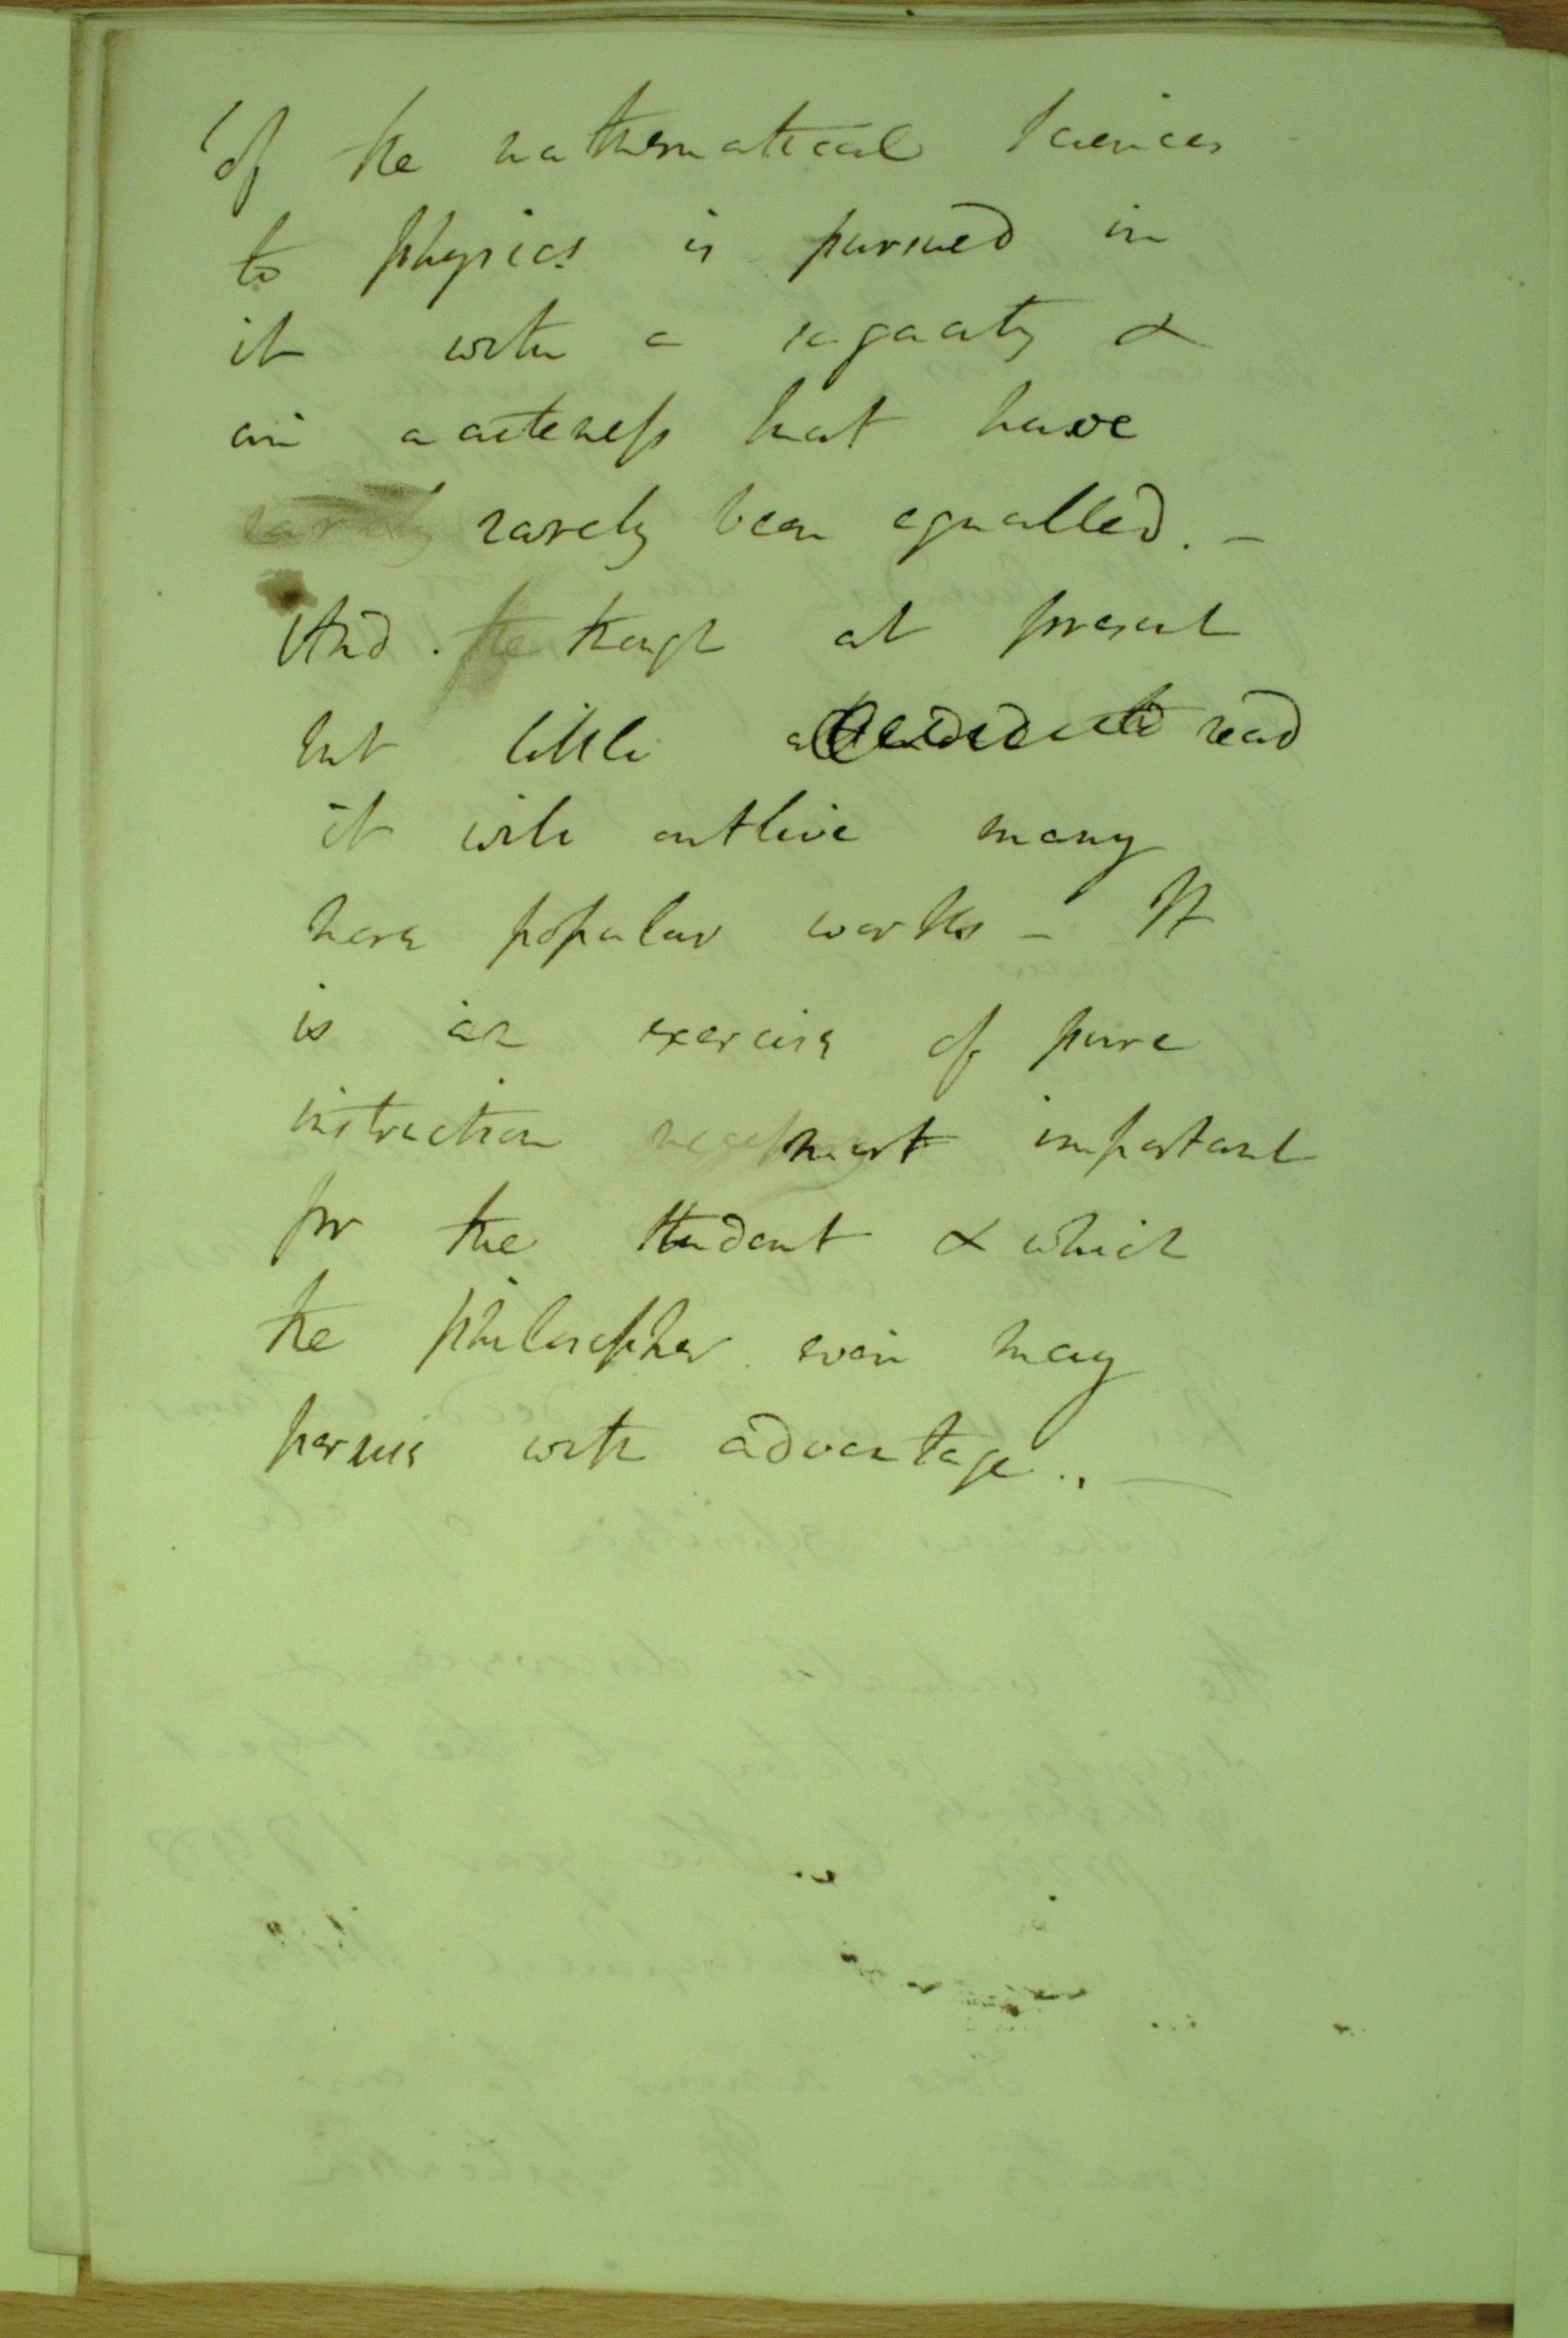 of the mathematical sciences
to physics is pursued in
it with a sagacity &
an acuteness that have
rarely rarely been equalled. –
And. the though at present
but little read
it will outlive many
more popular works – It
is an exercise of pure
instruction most important
for the student & which
the philosopher even may
peruse with advantage.. —